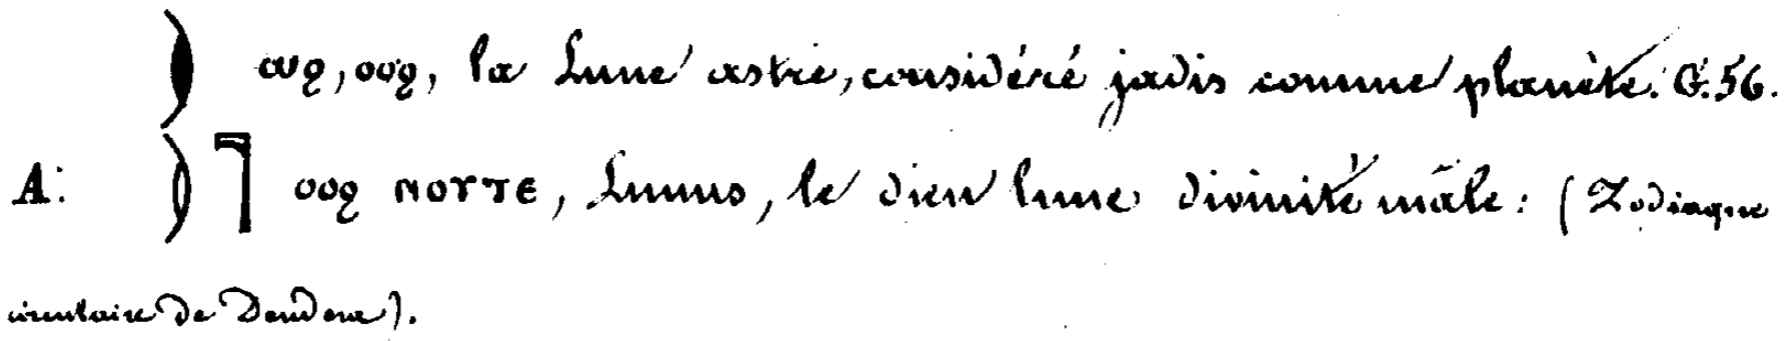 ⲱⲟϩ, ⲟⲟϩ, la Lune astre, considéré jadis comme planète. G. 56.
A: ⲟⲟϩ ⲛⲟⲩⲧⲉ, Lunus, le dieu lune divinité mâle: (Zodiaque
circulaire de Dendera).